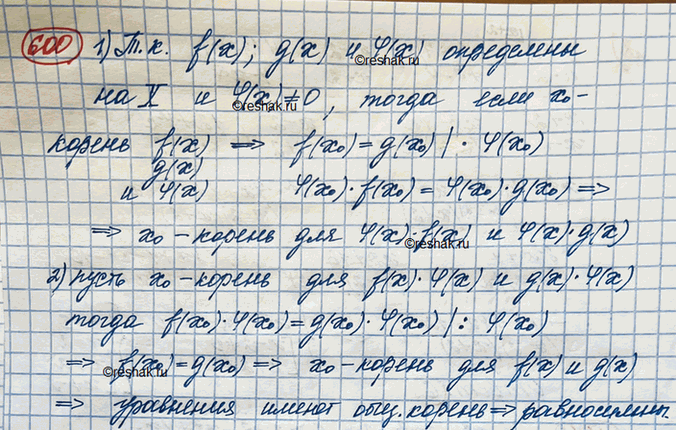 600 1) Т.к. f(x); g(x) и φ(x) определены
на X и φ(x)≠0, тогда если x₀-
корень f(x) ⇒ f(x₀)=g(x₀) | · φ(x₀)
g(x)
и φ(x) φ(x₀)·f(x₀)=φ(x₀)·g(x₀) ⇒
⇒ x₀-корень для φ(x)·f(x) и φ(x)·g(x)
2) пусть x₀-корень для f(x)·φ(x) и g(x)·φ(x)
тогда f(x₀)·φ(x₀)=g(x₀)·φ(x₀) | : φ(x₀)
⇒ f(x₀)=g(x₀) ⇒ x₀-корень для f(x) и g(x)
⇒ уравнения имеют общ. корень ⇒ равносильны.
©reshak.ru
©reshak.ru
©reshak.ru
©reshak.ru